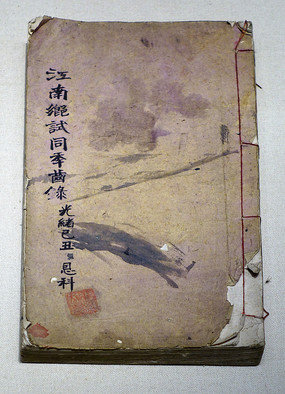 江南鄉試同年齒錄
光緒己丑恩科